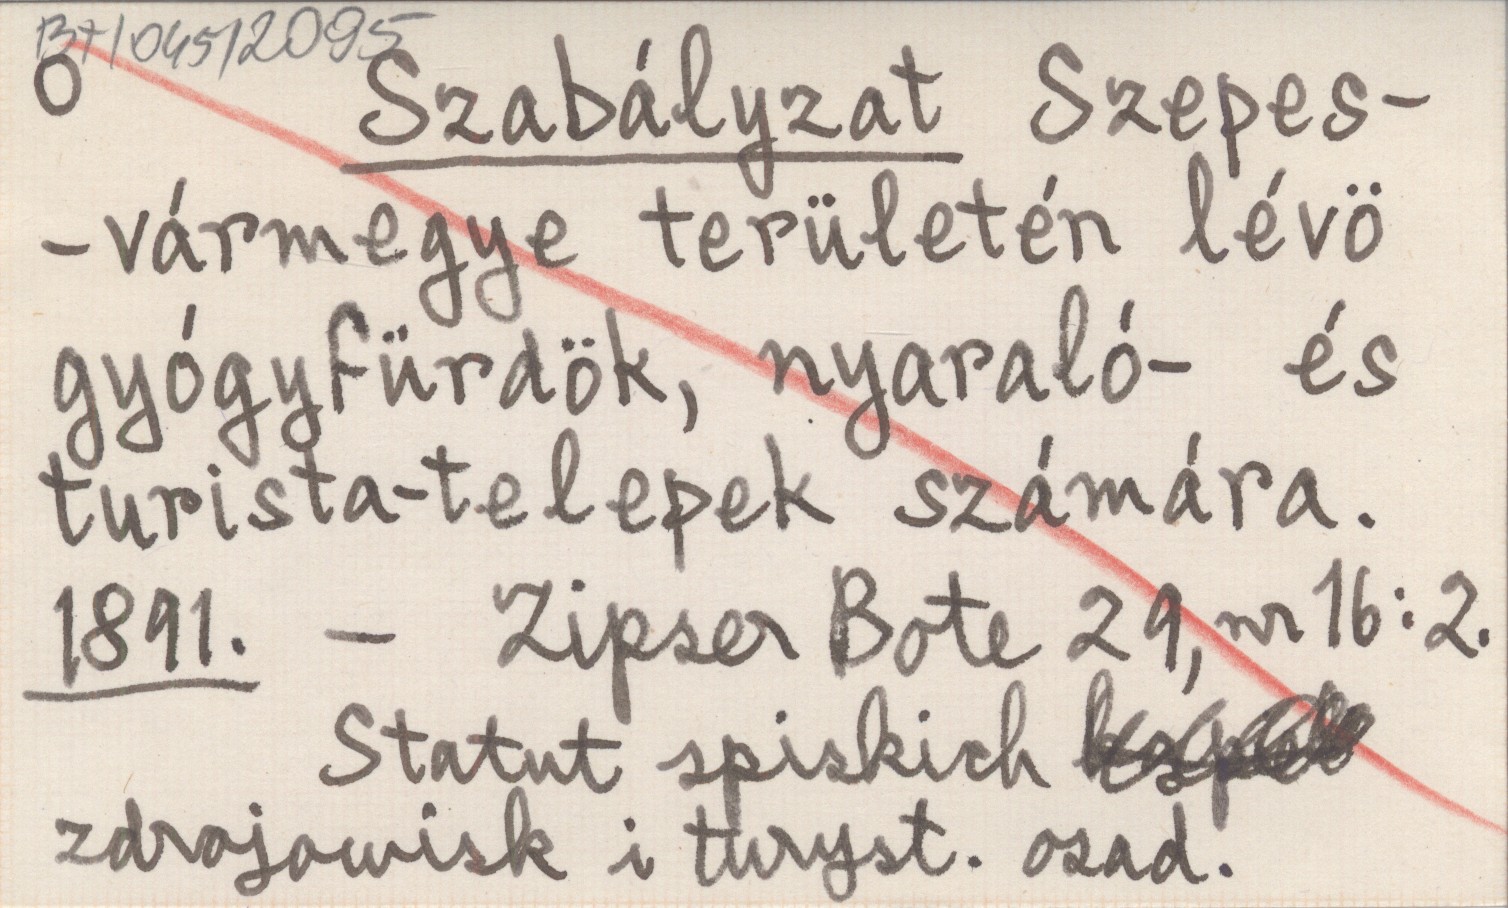 B7/045/2095
O Szabályzat Szepes-
-vármegye területén lévö
gyógyfürdök, nyaraló- és
turista-telepek számára.
1891. — Zipser Bote 29, nr 16:2.
Statut spiskich
zdrojowisk i turyst. osad.